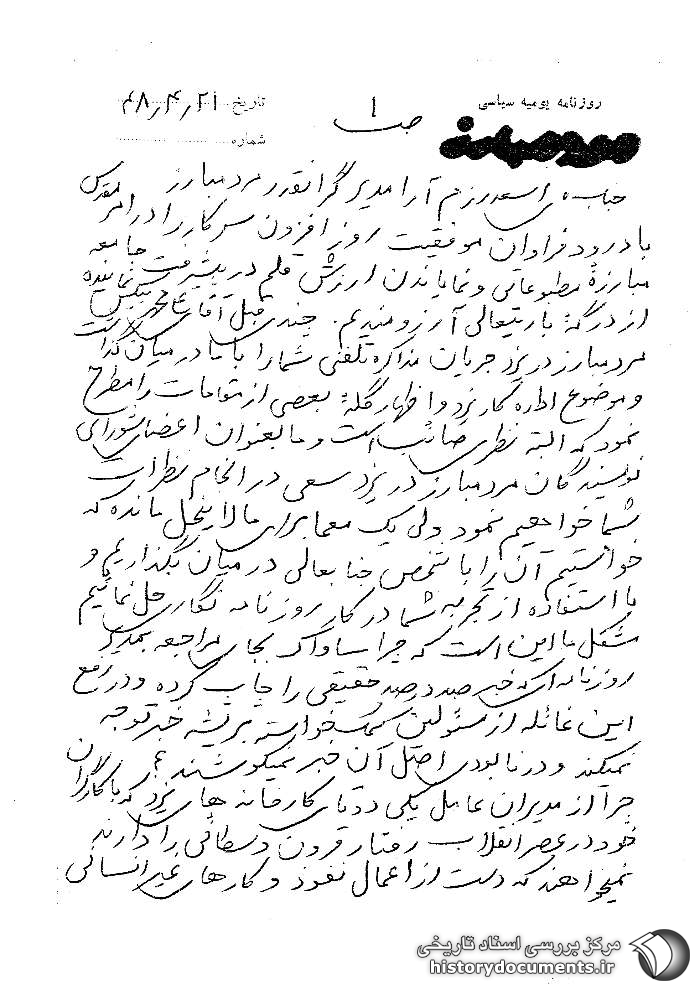 روزنامه یومیه سیاسی
مرد مبارز
تاریخ ۴۸٫۴٫۲۱
شماره
ص ۱
جناب آقای اسعد رزم آرا مدیر گرانقدر مرد مبارز
با درود فراوان موفقیت روز افزون سرکار را در امر مقدس
مبارزهٔ مطبوعاتی و نمایاندن ارزش قلم در پیشرفت جامعه
از درگهٔ باریتعالی آرزومندیم. چندی قبل آقای نماینده
مرد مبارز در یزد جریان مذاکره تلفنی شما را با ما در میان گذاشت
و موضوع اداره کار یزد و اظهار گلهٔ بعضی از مقامات را مطرح
نمود که البته نظری صائب است و ما بعنوان اعضای شورای
نویسندگان مرد مبارز در یزد سعی در انجام نظرات
شما خواهیم نمود ولی یک معما برای ما لاینحل مانده که
خواستیم آن را با شخص جنابعالی در میان بگذاریم و
با استفاده از تجربه شما در کار روزنامه نگاری حل نمائیم
مشکل ما این است که چرا ساواک بجای مراجعه بمدیر
روزنامه ای که خبر صد درصد حقیقی را چاپ کرده و در رفع
این غائله از مسئولین کمک خواسته بریشه خبر توجه
نمیکند و در نابودی اصل آن خبر نمیکوشند؟
چرا از مدیران عامل یکی دو تای کارخانه های یزد که با کارگران
خود در عصر انقلاب رفتار قرون وسطائی را دارند
نمیخواهند که دست از اعمال نفوذ و کارهای غیر انسانی
مرکز بررسی اسناد تاریخی
historydocuments.ir